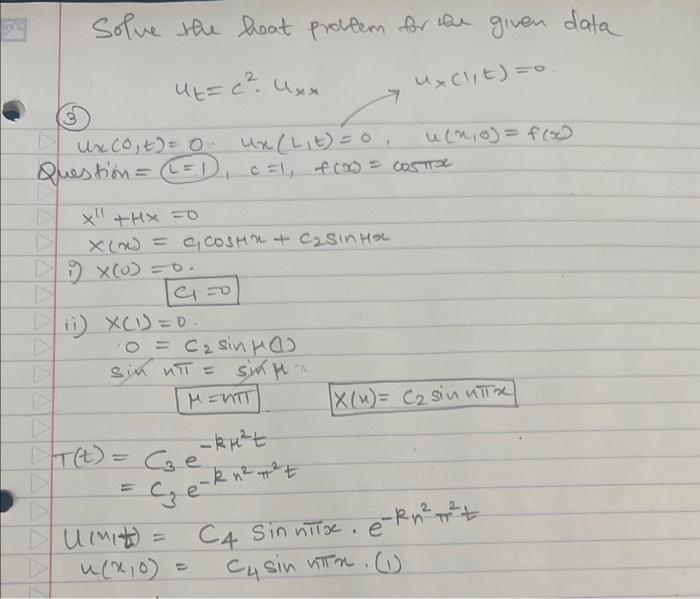 Solve the heat problem for the given data
uₜ = c². uₓₓ
uₓ(1,t) = 0.
③
uₓ(0,t) = 0. uₓ(L,t) = 0, u(x,0) = f(x)
Question = L=1, c=1, f(x) = cosπx
x'' + μx = 0
x(x) = c₁cosμx + c₂sinμx
i) x(0) = 0.
c₁ = 0
ii) x(1) = 0.
0 = c₂ sin μ(1)
sin nπ = sin μ x
μ = nπ X(x) = C₂ sin nπx
T(t) = C₃ e^{-kμ²t}
= C₃ e^{-k n² π² t}
U(x,t) = C₄ sin nπx . e^{-kn²π²t}
u(x,0) = C₄ sin nπx . (1)